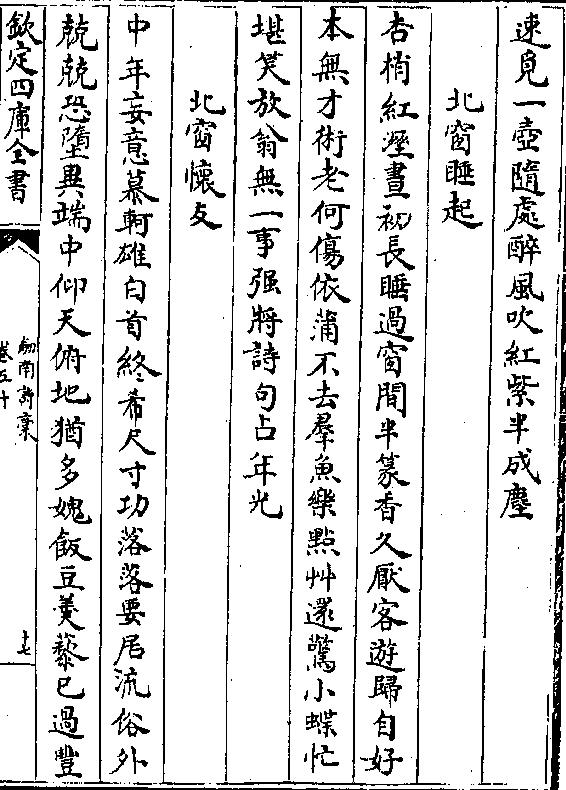 速覓一壺隨處醉風吹紅紫半成塵
北窗睡起
杏梢紅溼晝初長睡過窗間半篆香久厭客遊歸自好
本無才術老何傷依蒲不去羣魚樂點艸還驚小蝶忙
堪笑放翁無一事强將詩句占年光
北窗懷友
中年妄意慕軻雄白首終希尺寸功落落要居流俗外
兢兢恐墮異端中仰天俯地猶多媿飯豆羮藜已過豐
欽定四庫全書
劒南詩稾
卷五十
十七